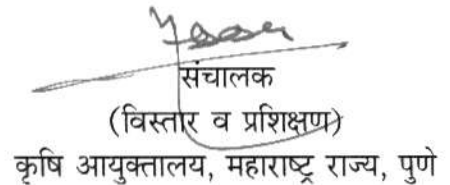 संचालक
(विस्तार व प्रशिक्षण)
कृषि आयुक्तालय, महाराष्ट्र राज्य, पुणे